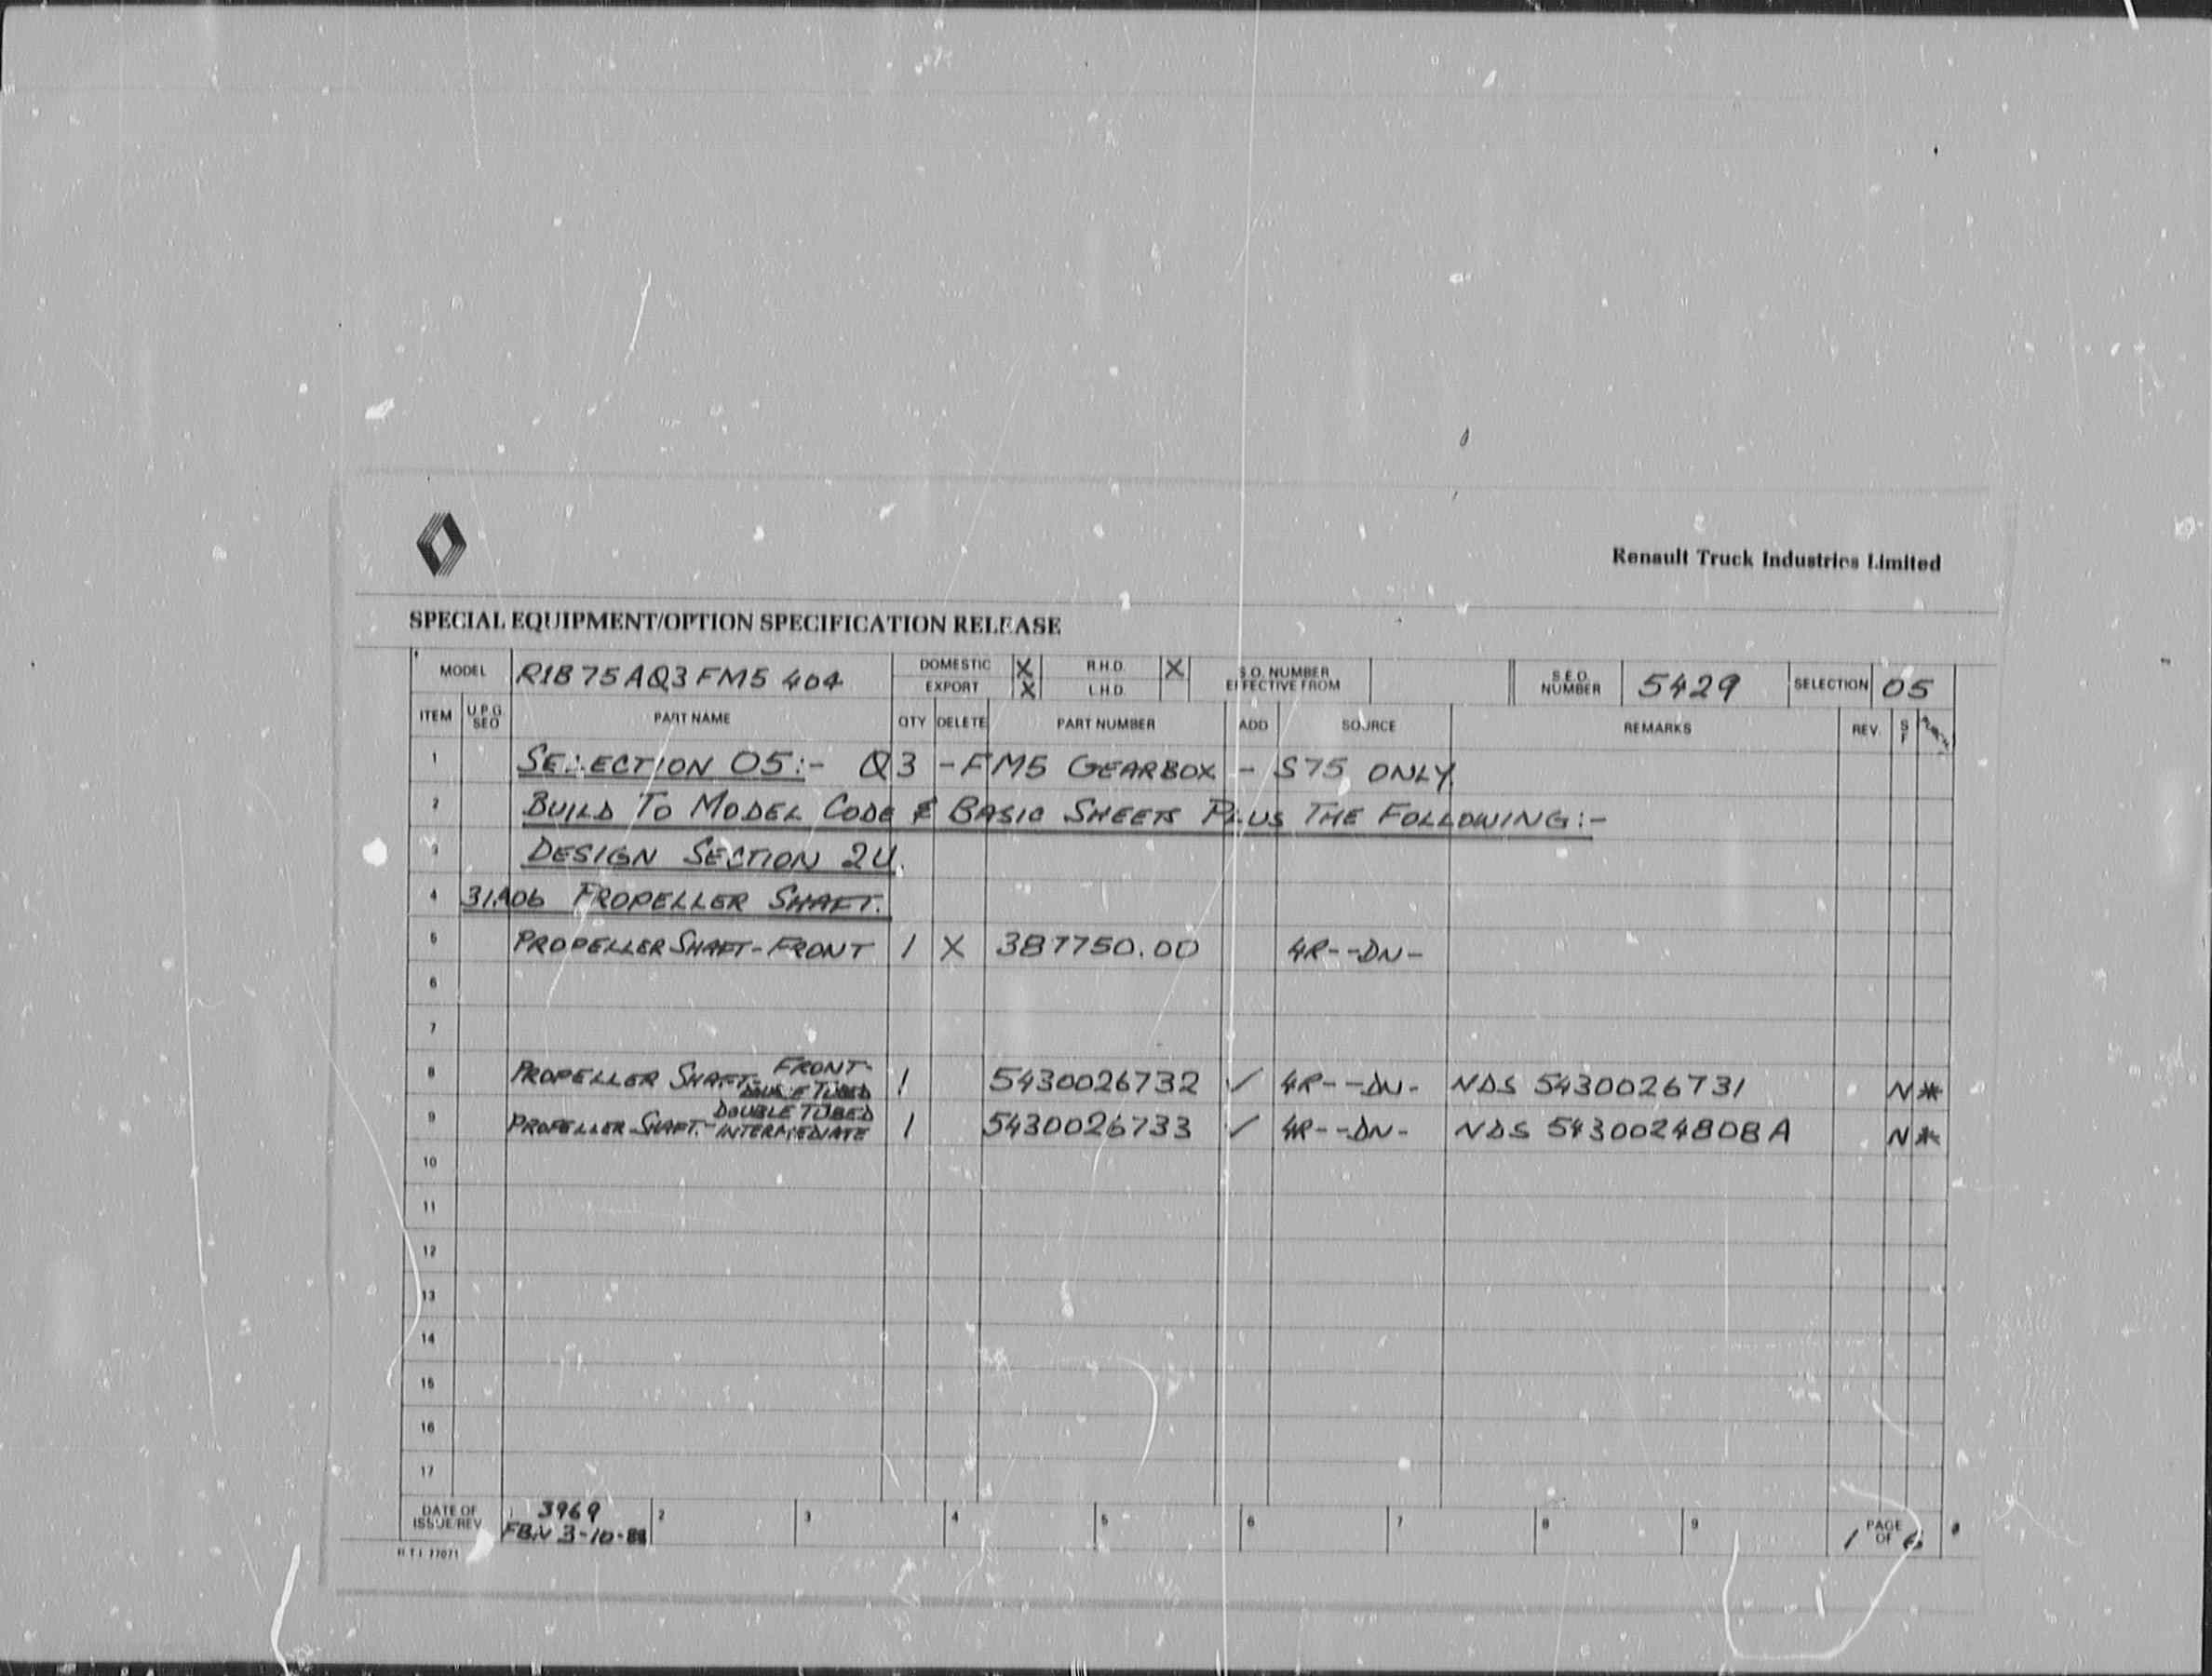 Renault Truck Industries Limited
SPECIAL EQUIPMENT/OPTION SPECIFICATION RELEASE
MODEL R1B75AQ3FM5 404 DOMESTIC X R.H.D. X S.O. NUMBER EFFECTIVE FROM S.E.O. NUMBER 5429 SELECTION 05
EXPORT X L.H.D.
ITEM U.P.G. SEQ PART NAME QTY DELETE PART NUMBER ADD SOURCE REMARKS REV. S F
1 SELECTION 05:- Q3 - FM5 GEARBOX - S75 ONLY.
2 BUILD TO MODEL CODE & BASIC SHEETS PLUS THE FOLLOWING:-
3 DESIGN SECTION 2U.
4 31A06 PROPELLER SHAFT.
5 PROPELLER SHAFT-FRONT 1 X 387750.00 4R--DN-
6
7
8 PROPELLER SHAFT- FRONT- DOUBLE TUBED 1 5430026732 ✓ 4R--DN- NDS 5430026731 N *
9 PROPELLER SHAFT.- DOUBLE TUBED INTERMEDIATE 1 5430026733 ✓ 4R--DN- NDS 5430024808A N *
10
11
12
13
14
15
16
17
DATE OF ISSUE/REV 3969 2 3 4 5 6 7 8 9 1 PAGE OF
FBN 3-10-
R.T.I. 77071